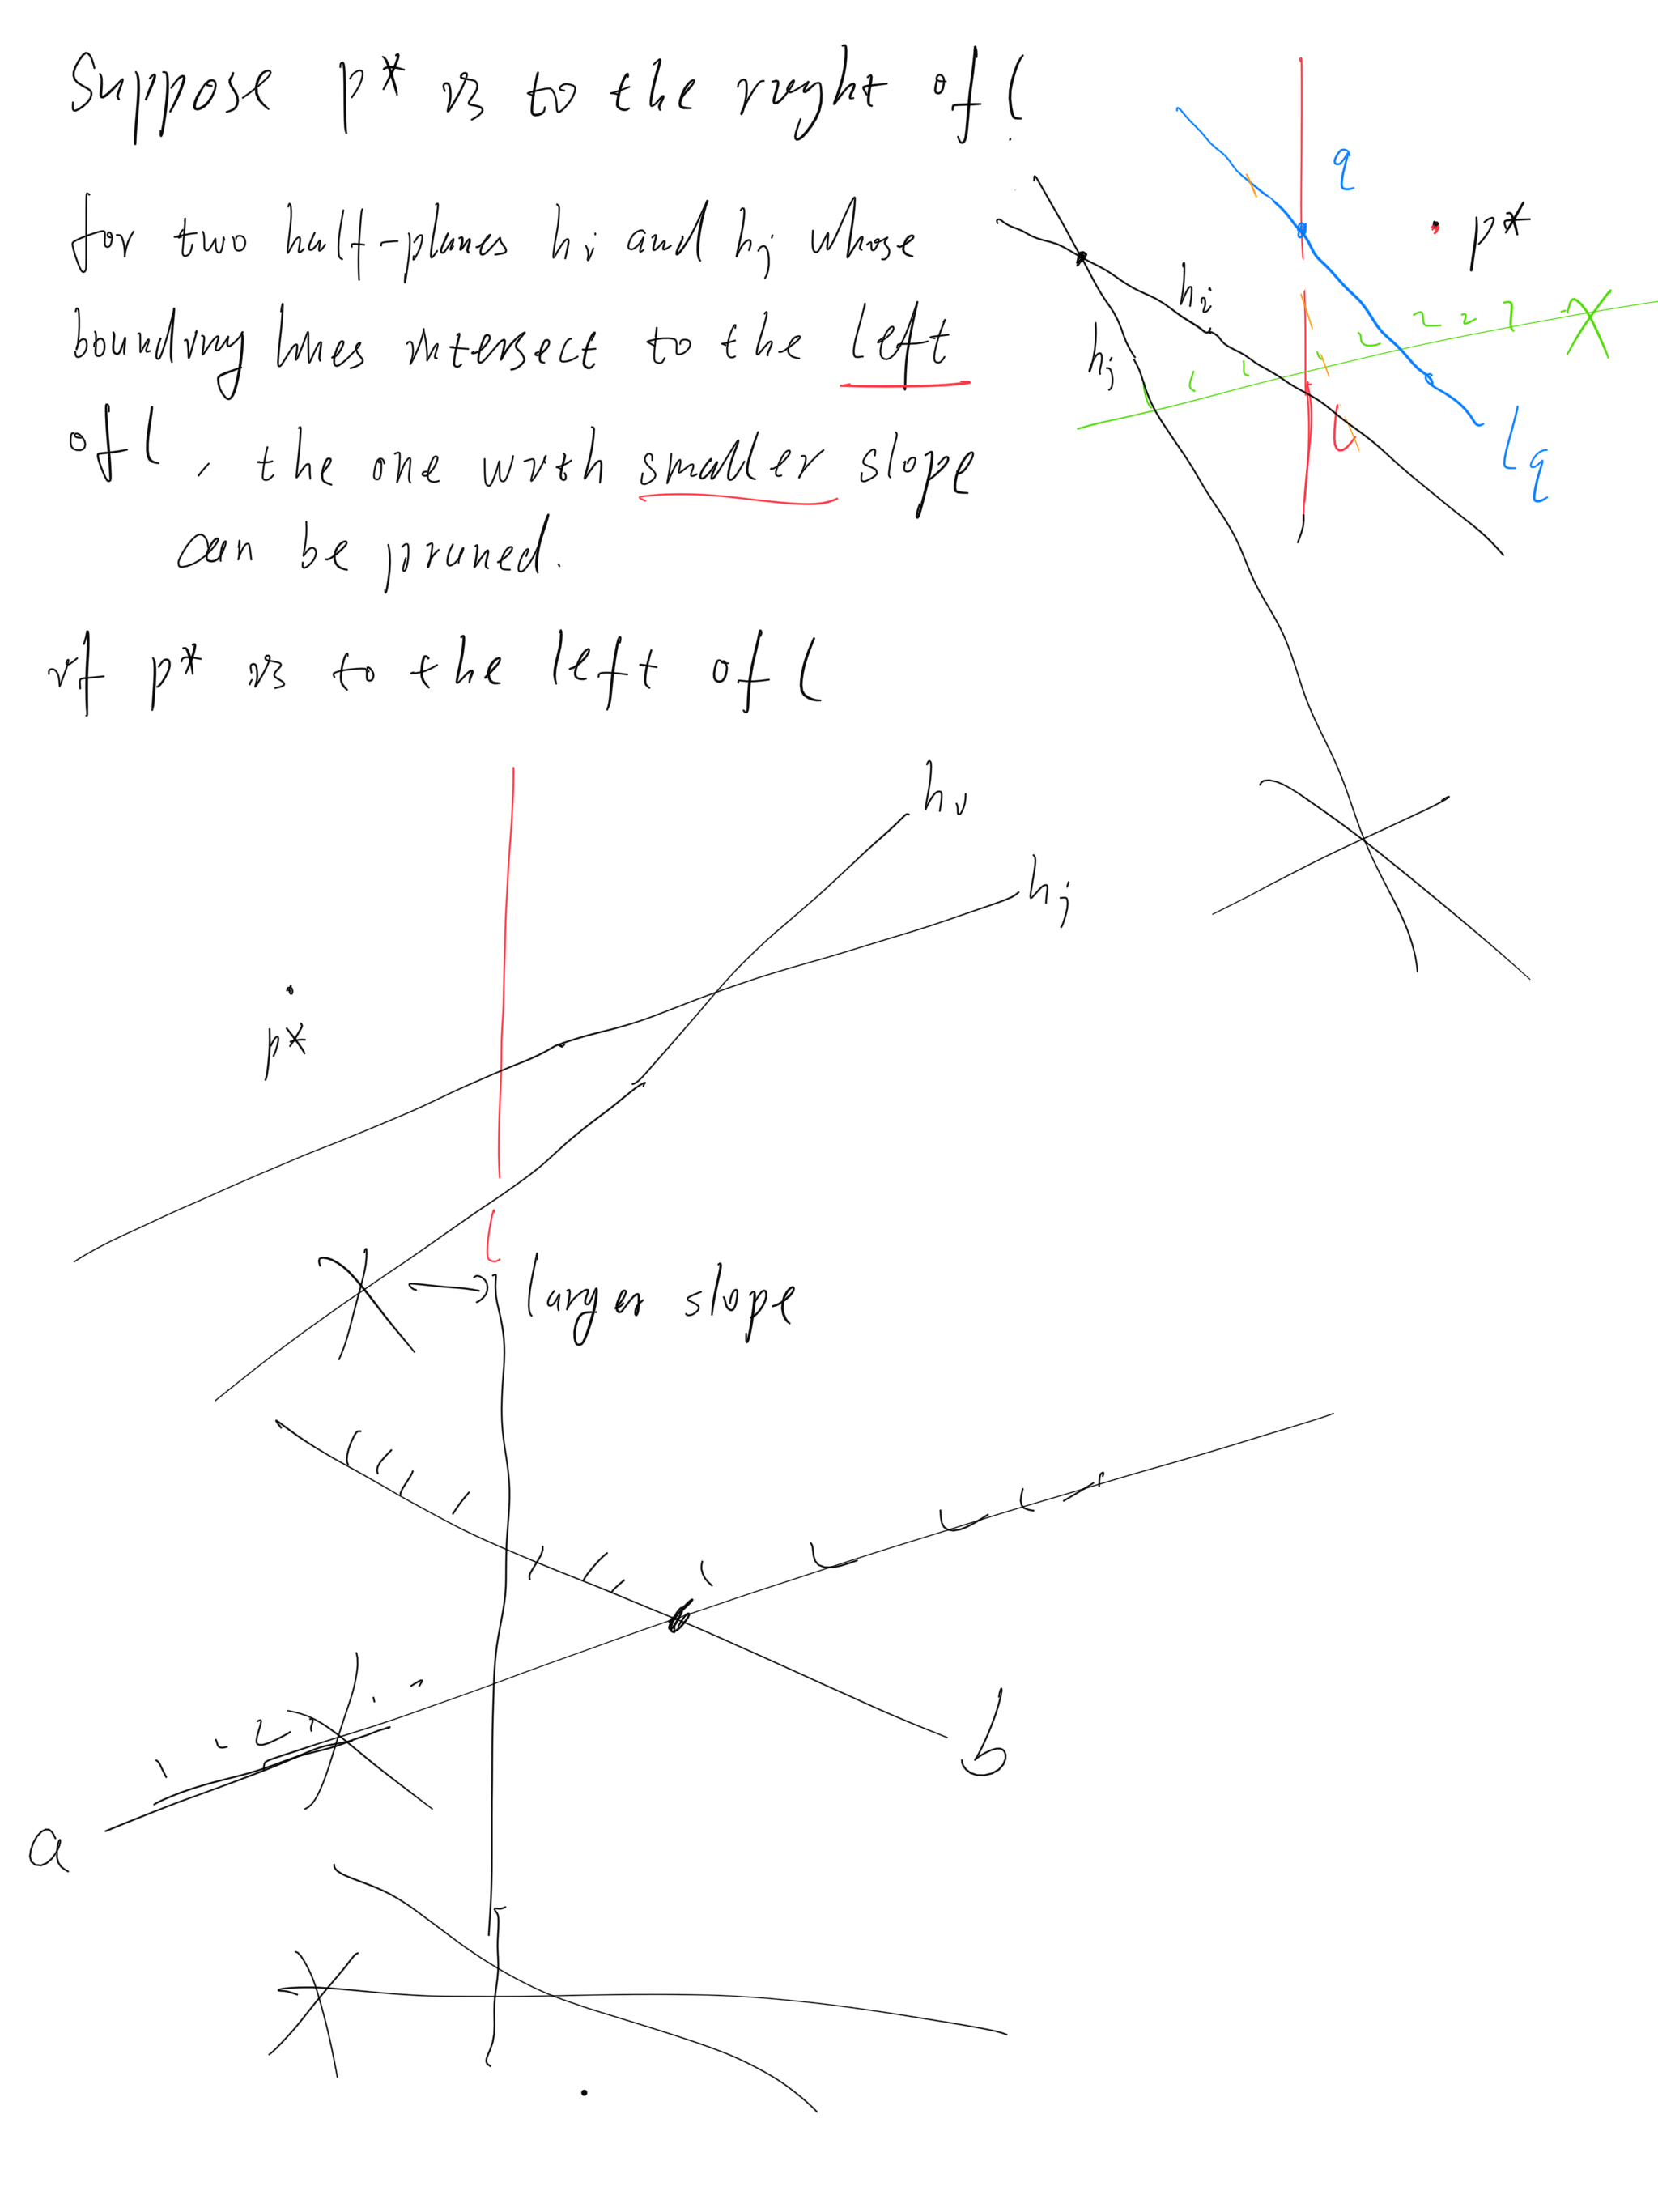 Suppose p* is to the right of l.
for two half-planes hi and hj whose
bounding lines intersect to the left
of l, the one with smaller slope
can be pruned.
if p* is to the left of l
q
p*
hi
hj
l
lq
hi
hj
p*
l
larger slope
b
a